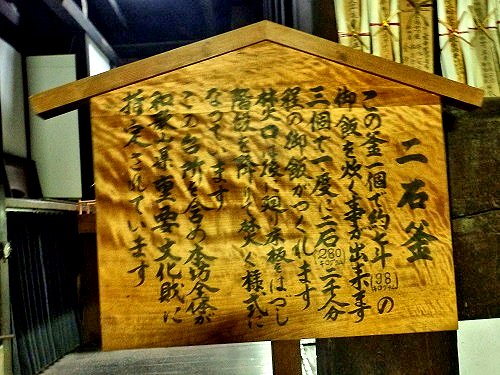 二石釜
この釜一個で約七斗(98キログラム)の
御飯を炊く事が出来ます
三個で一度に二石(280キログラム)二千人分
程の御飯がつくれます
焚口は
階段を降りて焚く様式に
なっています
この台所を含め本坊全体が
和歌山県重要文化財に
指定されています